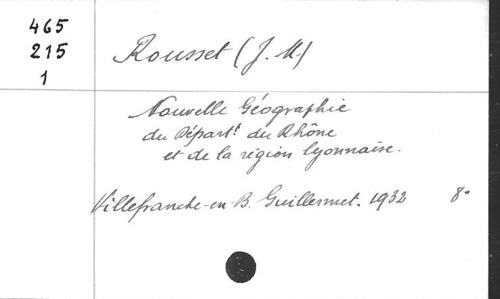 465
215
1
Rousset (J. M)
Nouvelle Géographie
du Départt du Rhône
et de la région lyonnaise.
Villefranche-en-B. Guillermet. 1932 8°